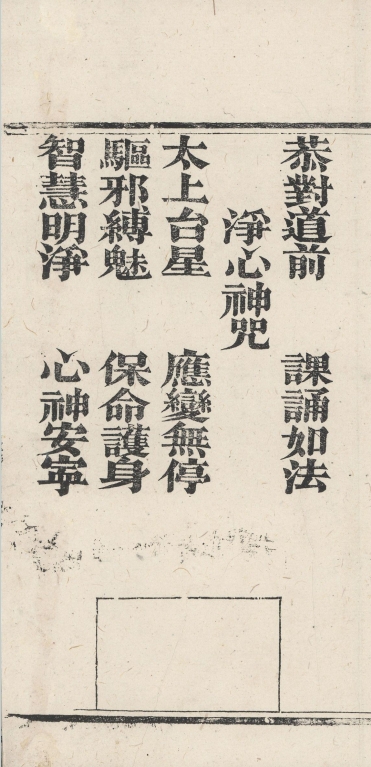 恭對道前　課誦如法
淨心神咒
太上台星　應變無停
驅邪縛魅　保命護身
智慧明淨　心神安寧